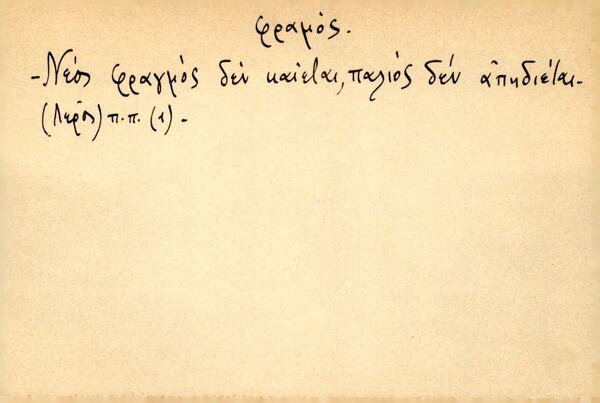 φραμός.
-Νέος φραγμός δέν καίεται, παλιός δέν ἀπηδιέται-
(Λέρος) π.π. (1) -